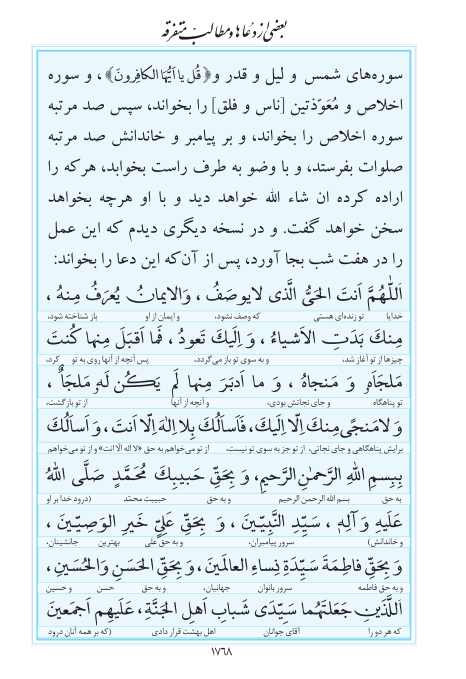 بعضی از دعاها و مطالب متفرقه
سوره‌های شمس و لیل و قدر و﴿قُل یا اَیُّهَا الکافِرونَ﴾، و سوره
اخلاص و مُعَوّذتین [ناس و فلق] را بخواند، سپس صد مرتبه
سوره اخلاص را بخواند، و بر پیامبر و خاندانش صد مرتبه
صلوات بفرستد، و با وضو به طرف راست بخوابد، هرکه را
اراده کرده ان شاء الله خواهد دید و با او هرچه بخواهد
سخن خواهد گفت. و در نسخه دیگری دیدم که این عمل
را در هفت شب بجا آورد، پس از آن‌که این دعا را بخواند:
اَللّٰهُمَّ اَنتَ الحَیُّ الَّذی لایوصَفُ، وَالایمانُ یُعرَفُ مِنهُ،
خدایا تو زنده‌ای هستی که وصف نشود، و ایمان از او باز شناخته شود،
مِنكَ بَدَتِ الاَشیاءُ، وَ اِلَیكَ تَعودُ، فَما اَقبَلَ مِنها كُنتَ
چیزها از تو آغاز شد، و به سوی تو باز می‌گردد، پس آنچه از آنها روی به تو کرد،
مَلجَاَهُ وَ مَنجاهُ، وَ ما اَدبَرَ مِنها لَم یَكُن لَهُ مَلجَاٌ،
تو پناهگاه و جای نجاتش بودی، و آنچه از آنها از تو بازگشت،
وَ لامَنجی مِنكَ اِلّا اِلَیكَ، فَاَساَلُكَ بِلا اِلٰهَ اِلّا اَنتَ، وَ اَساَلُكَ
برایش پناهگاهی و جای نجاتی، از تو جز به سوی تو نیست، از تو می‌خواهم به حق «لا اله الّا انت» و از تو می‌خواهم
بِبِسمِ اللهِ الرَّحمٰنِ الرَّحیمِ، وَ بِحَقِّ حَبیبِكَ مُحَمَّدٍ صَلَّی اللهُ
به حق بسم الله الرحمن الرحیم و به حق حبیبت محمّد (درود خدا بر او
عَلَیهِ وَ آلِهِ، سَیِّدِ النَّبِیّینَ، وَ بِحَقِّ عَلِیٍّ خَیرِ الوَصِیّینَ،
و خاندانش) سرور پیامبران، و به حق علی بهترین جانشینان،
وَ بِحَقِّ فاطِمَةَ سَیِّدَةِ نِساءِ العالَمینَ، وَ بِحَقِّ الحَسَنِ وَالحُسَینِ،
و به حق فاطمه سرور بانوان جهانیان، و به حق حسن و حسین
اَللَّذَینِ جَعَلتَهُما سَیِّدَی شَبابِ اَهلِ الجَنَّةِ، عَلَیهِم اَجمَعینَ
که هر دو را آقای جوانان اهل بهشت قرار دادی (که بر همه آنان درود
۱۷۶۸